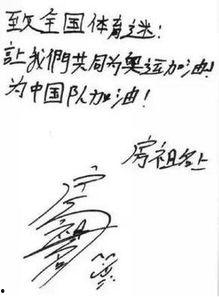 致全国体育迷:
让我們共同为奥运加油!
为中国队加油!
房祖名上